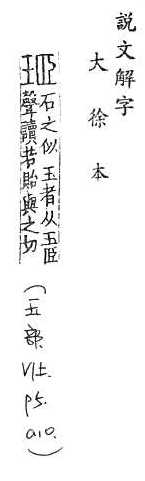 說文解字
大徐本
石之似玉者从玉𦣞
聲讀若貽與之切
(玉部. V1上. p5. a10.)